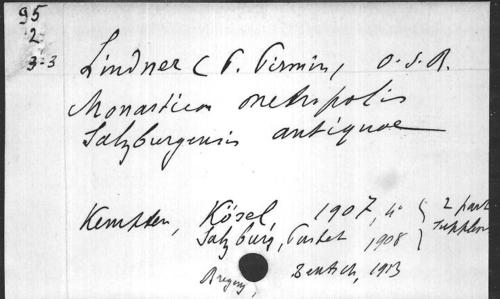 95
2
3-3
Lindner (P. Pirmin), O.S.B.
Monasticon metropolis
Salzburgensis antiquae
Kempten, Kösel, 1907, 4° { 2 part
Salzburg, Pustet 1908 { supplem
Bregenz, Teutsch, 1913